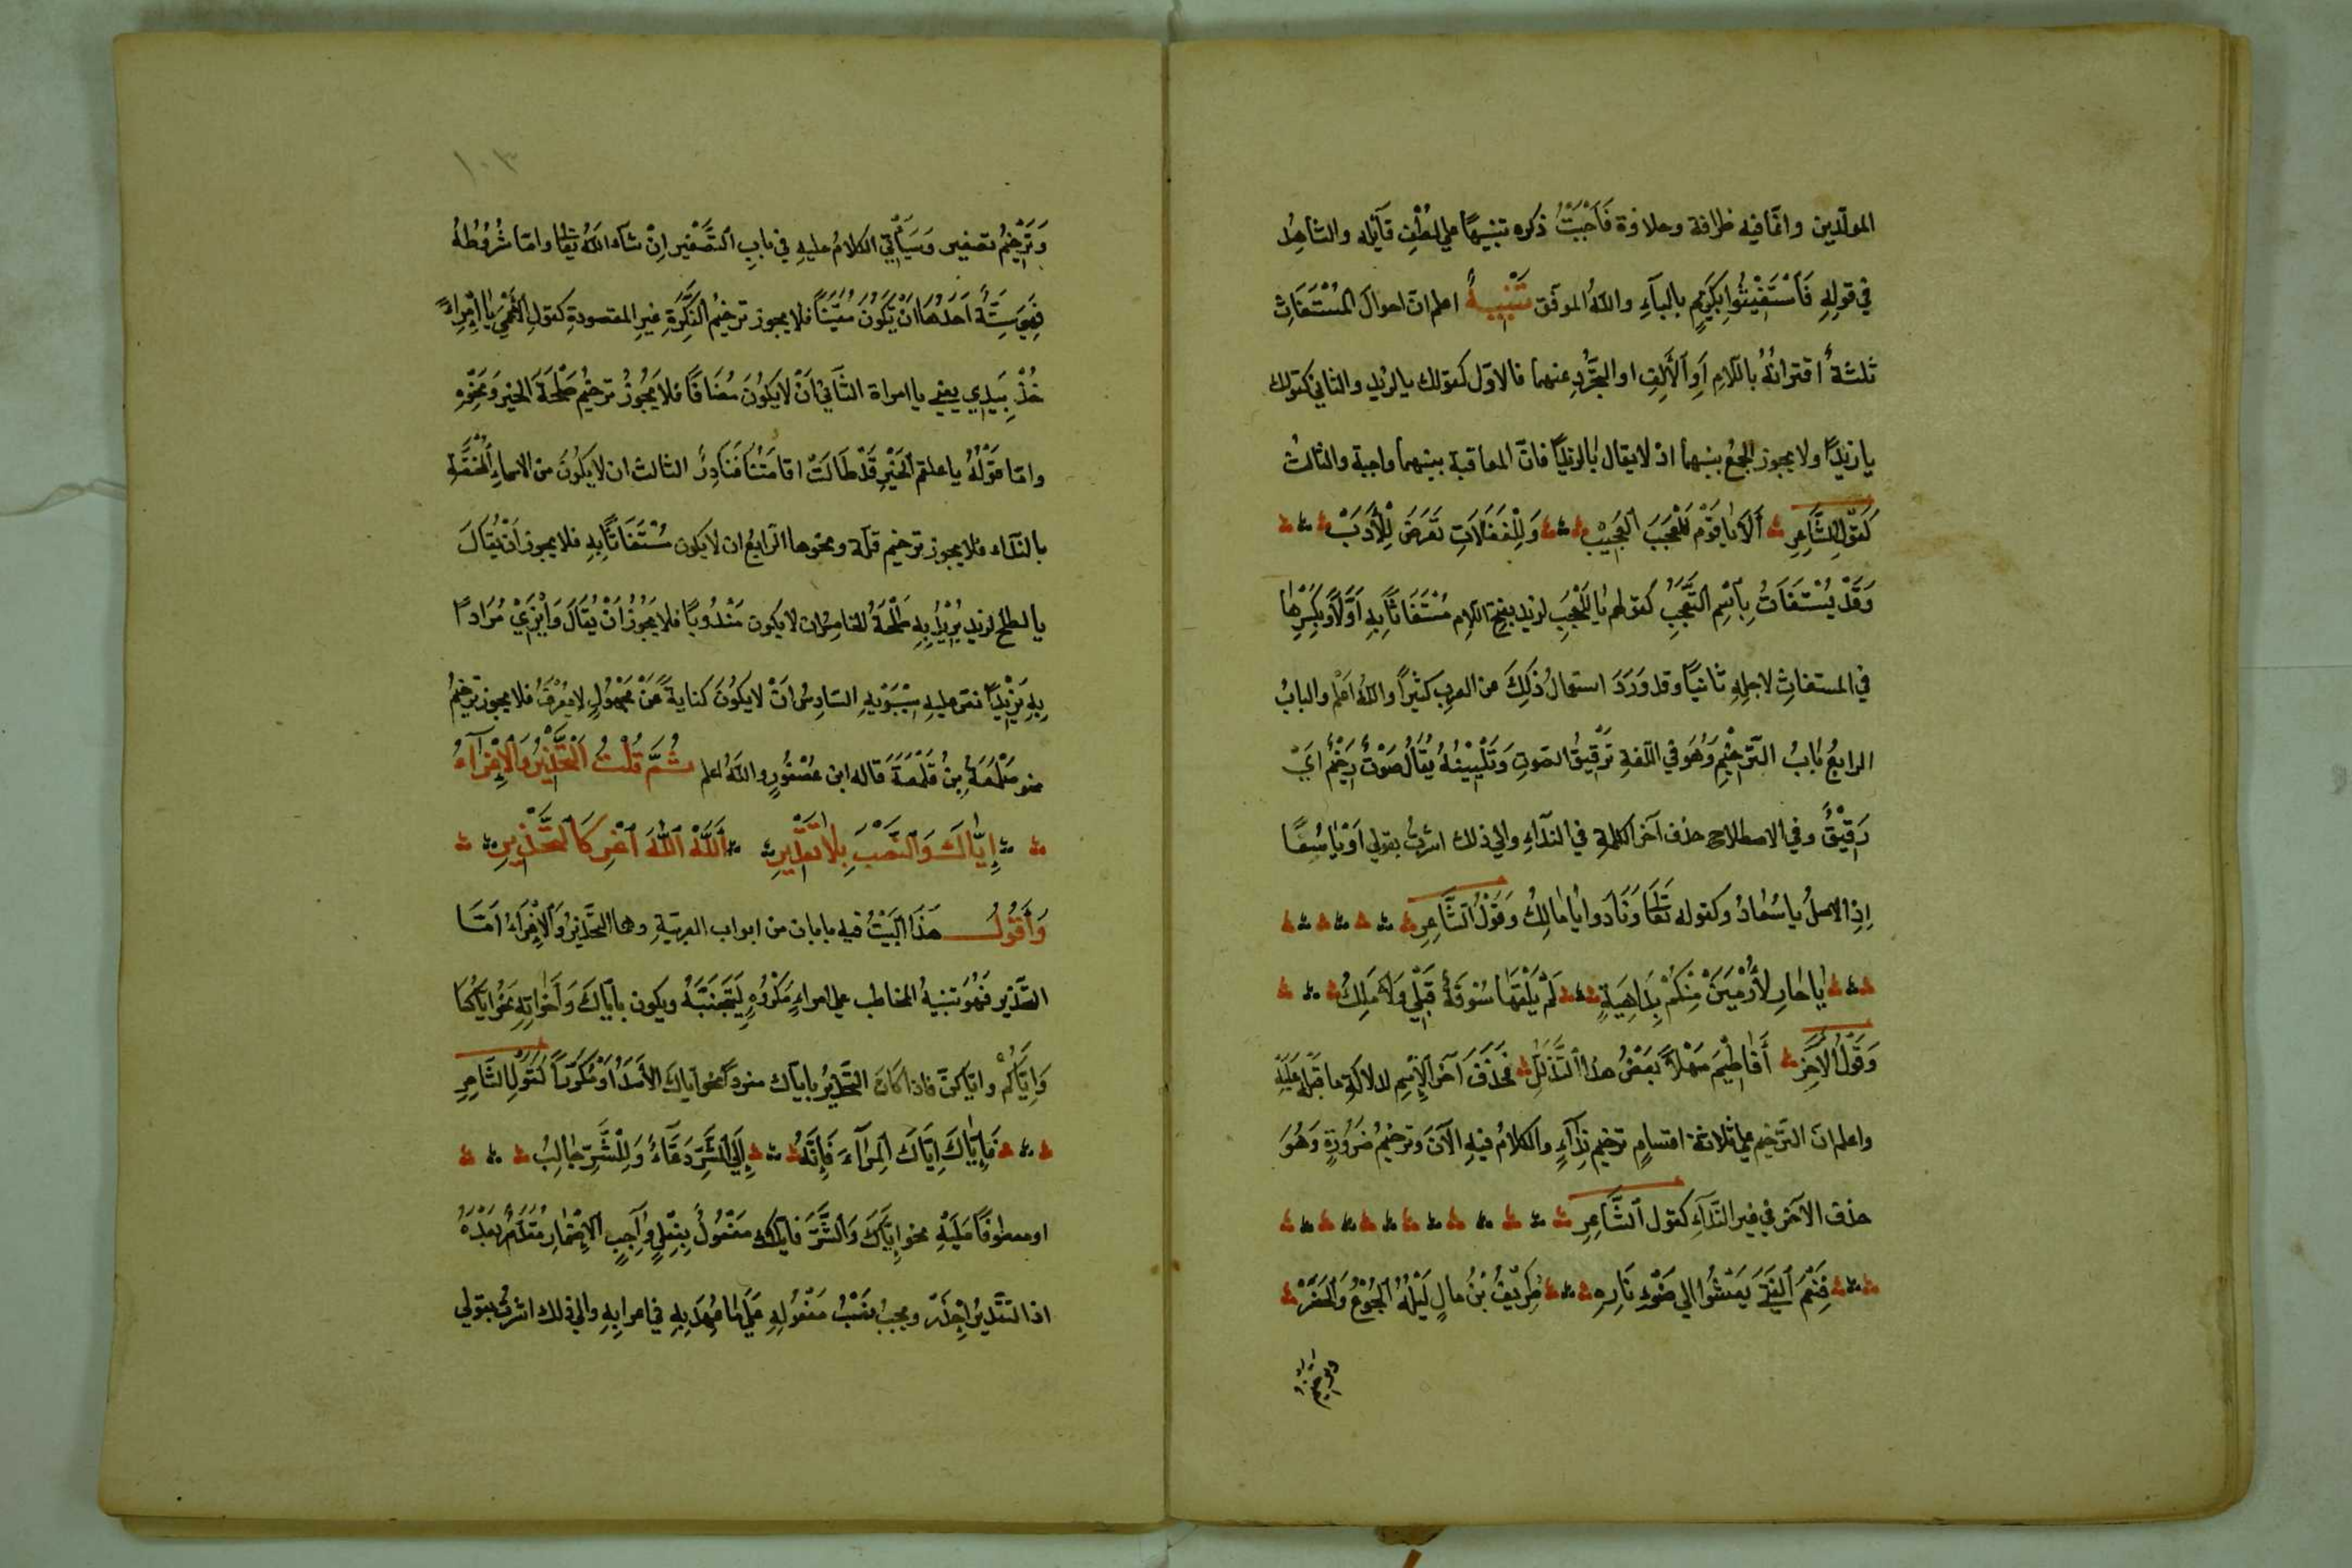 المولّدين وانّما فيه ظرافة وحلاوة فَاَحْبَبْتُ ذكره تنبيهًا علي لُطْفِ قآئله والشاهِدُ
في قولِهِ فَاَسْتَغِيثُوا بِكَرِيمٍ بالبآءِ واللهُ الموفّق تَنْبِيهٌ اعلم انّ احوالَ المُسْتَغَاثِ
ثلثةٌ اقترانُهُ باللّامِ اَوِ الْأَلِفِ او التجرُّدِ عنهما فالاوّل كقولك يا لزيد والثاني كقولك
يا زيدًا ولا يجوز الجمعُ بينهما اذ لا يقال يا لزيدًا فانّ المعاقبة بينهما واجبة والثالث
كَقَوْلِ الشَّاعِرِ أَلَا يَا قَوْمُ لِلْعَجَبِ الْعَجِيْبِ وَلِلْغَفَلَاتِ تَعْرِضُ لِلْأَرِيبْ
وَقَدْ يُسْتَغَاثُ بِاسْمِ التَّعَجُّبِ كقولهم يا لَلْعَجَبِ لزيد بفتح اللام مُسْتَغَاثًا بِهِ اَوَّلًا وَبِكَسْرِهَا
في المستغاثِ لاجلِهِ ثانيًا وقد وَرَدَ استعمالُ ذَلِكَ من العرب كثيرًا واللهُ اعلم والبابُ
الرابعُ بَابُ التَّرْخِيْمِ وَهُوَ في اللّغةِ تَرْقِيقُ الصّوتِ وَتَلْيِينُهُ يُقَالُ صَوْتٌ رَخِيمٌ اَيْ
رَقِيْقٌ وفي الاصطلاح حذف آخر الكلمة في الندآءِ والي ذلك اشرتُ بقولي اَوْ يَا سُعَا
اِذِ الاصلُ يا سُعَادُ وكقوله تَعَالَى وَنَادَوا يَا مَالِكُ وَقَوْلُ الشَّاعِرِ
يَا حَارِ لَا أُرْمَيَنْ مِنْكُمْ بِدَاهِيَةٍ لَمْ يَلْقَهَا سُوقَةٌ قَبْلِي وَلَا مَلِكُ
وَقَوْلُ الْآخَرِ أَفَاطِمَ مَهْلًا بَعْضَ هَذَا التَّدَلُّلِ فحذَفَ آخرَ الْاِسْمِ لدلالةِ ما قبلَهُ عَلَيْهِ
واعلم انّ التّرخيم علي ثلاثة اقسامٍ ترخيم نِدَآءٍ والكلامُ فيهِ الآنَ وترخيمُ ضَرُورَةٍ وَهُوَ
حذف الآخر في غير النّدآءِ كقول الشَّاعِرِ
فَنِعْمَ الْفَتَى تَعْشُوا الي ضَوْءِ نَارِهِ طَرِيْفُ بْنُ مَالٍ لَيْلَةَ الْجُوعِ وَالْخَصَرْ
وترخيم
١٠٣
وَتَرْخِيْمُ تصغير وَسَيَأْتِي الكلامُ عليهِ في بابِ التَّصْغِيرِ اِنْ شاء اللهُ تعالى وامّا شُرُوطُهُ
فَهِيَ سِتَّةٌ اَحَدُهَا اَنْ يَكُونَ مُعَيَّنًا فلا يجوز ترخيمُ النَّكِرَةِ غيرِ المقصودةِ كقولِ الاَعْمَى يَا امْرَاءَةً
خُذْ بِيَدِي يعني يا امراة الثَّانِيْ اَنْ لَا يَكُوْنَ مُضَافًا فلا يَجُوزُ ترخيمُ طَلْحَةَ الخير وَنَحْوِهِ
وامّا قَوْلُهُ يا علقم الخَيْرِ قَدْ طَالَتْ اقامَتُنَا فَنَادِرٌ الثالث ان لا يَكُوْنَ من الاسماءِ الْمُخْتَصَّةِ
بالنّداء فلا يجوز ترخيم قلة ونحوها الرّابعُ ان لا يكون مُسْتَغَاثًا بِهِ فلا يجوز اَنْ يُقَالَ
يا لطلحَ لزيد يُرِيْدُ بِهِ طَلْحَةَ الخامِسُ ان لا يكون مَنْدُوبًا فلا يَجُوْزُ اَنْ يُقَالَ وَايْزَيْ مُرَادًا
بِهِ يَزِيْدًا نصّ عليهِ سِيْبَوَيْهِ السّادِسُ اَنْ لا يَكُوْنَ كنايةً عَنْ مَجْهُوْلٍ لا يُعْرَفُ فلا يجوز ترخيمُ
نحو صَلْمَعَةُ بْنُ قَلْمَعَةَ قاله ابن عُصْفُورٍ واللهُ اعلم ثُمَّ قُلْتُ اَلتَّحْذِيْرُ وَالْاِغْرَآءُ
إِيَّاكَ وَالنَّصْبَ بِلَا تَقْدِيرِ اَللهَ اَللهَ اَغْرِ كَالتَّحْذِيرِ
وَأَقُولُ هَذَا الْبَيْتُ فيه بابان من ابواب العربيّةِ وهما التَّحْذِيْرُ وَالْاِغْرَاءُ اَمَّا
التَّحْذِيرُ فَهُوَ تنبيهُ المخاطب علي امرٍ مَكْرُوهٍ لِيَجْتَنِبَهُ ويكون بايَّاكَ وَأَخَوَاتِهِ نَحْوُ ايَّاكُمَا
وَاِيَّاكُمْ وايّاكنّ فاذا كانَ التَّحْذِيْرُ بايّاك مفردًا نحو اياكَ الاَسَدَ اَوْ مُكَرَّرًا كَقَوْلِ الشَّاعِرِ
فَإِيَّاكَ اِيَّاكَ الْمِرَآءَ فَإِنَّهُ إِلَى الشَّرِّ دَعَّاءٌ وَلِلشَّرِّ جَالِبُ
او معطوفًا عَلَيْهِ نحو اِيَّاكَ وَالشَّرَّ فايّاك مَفْعُولٌ بِفِعْلٍ وَاجِبِ الْاِضْمَارِ مُقَدَّرٌ بَعْدَهُ
اذ التقديرُ احذر ويجبُ نَصْبُ مَفْعُولِهِ عَلَى مَا مُهِّدَ بِهِ في اعرابِهِ والي ذلك اشرتُ بقولي